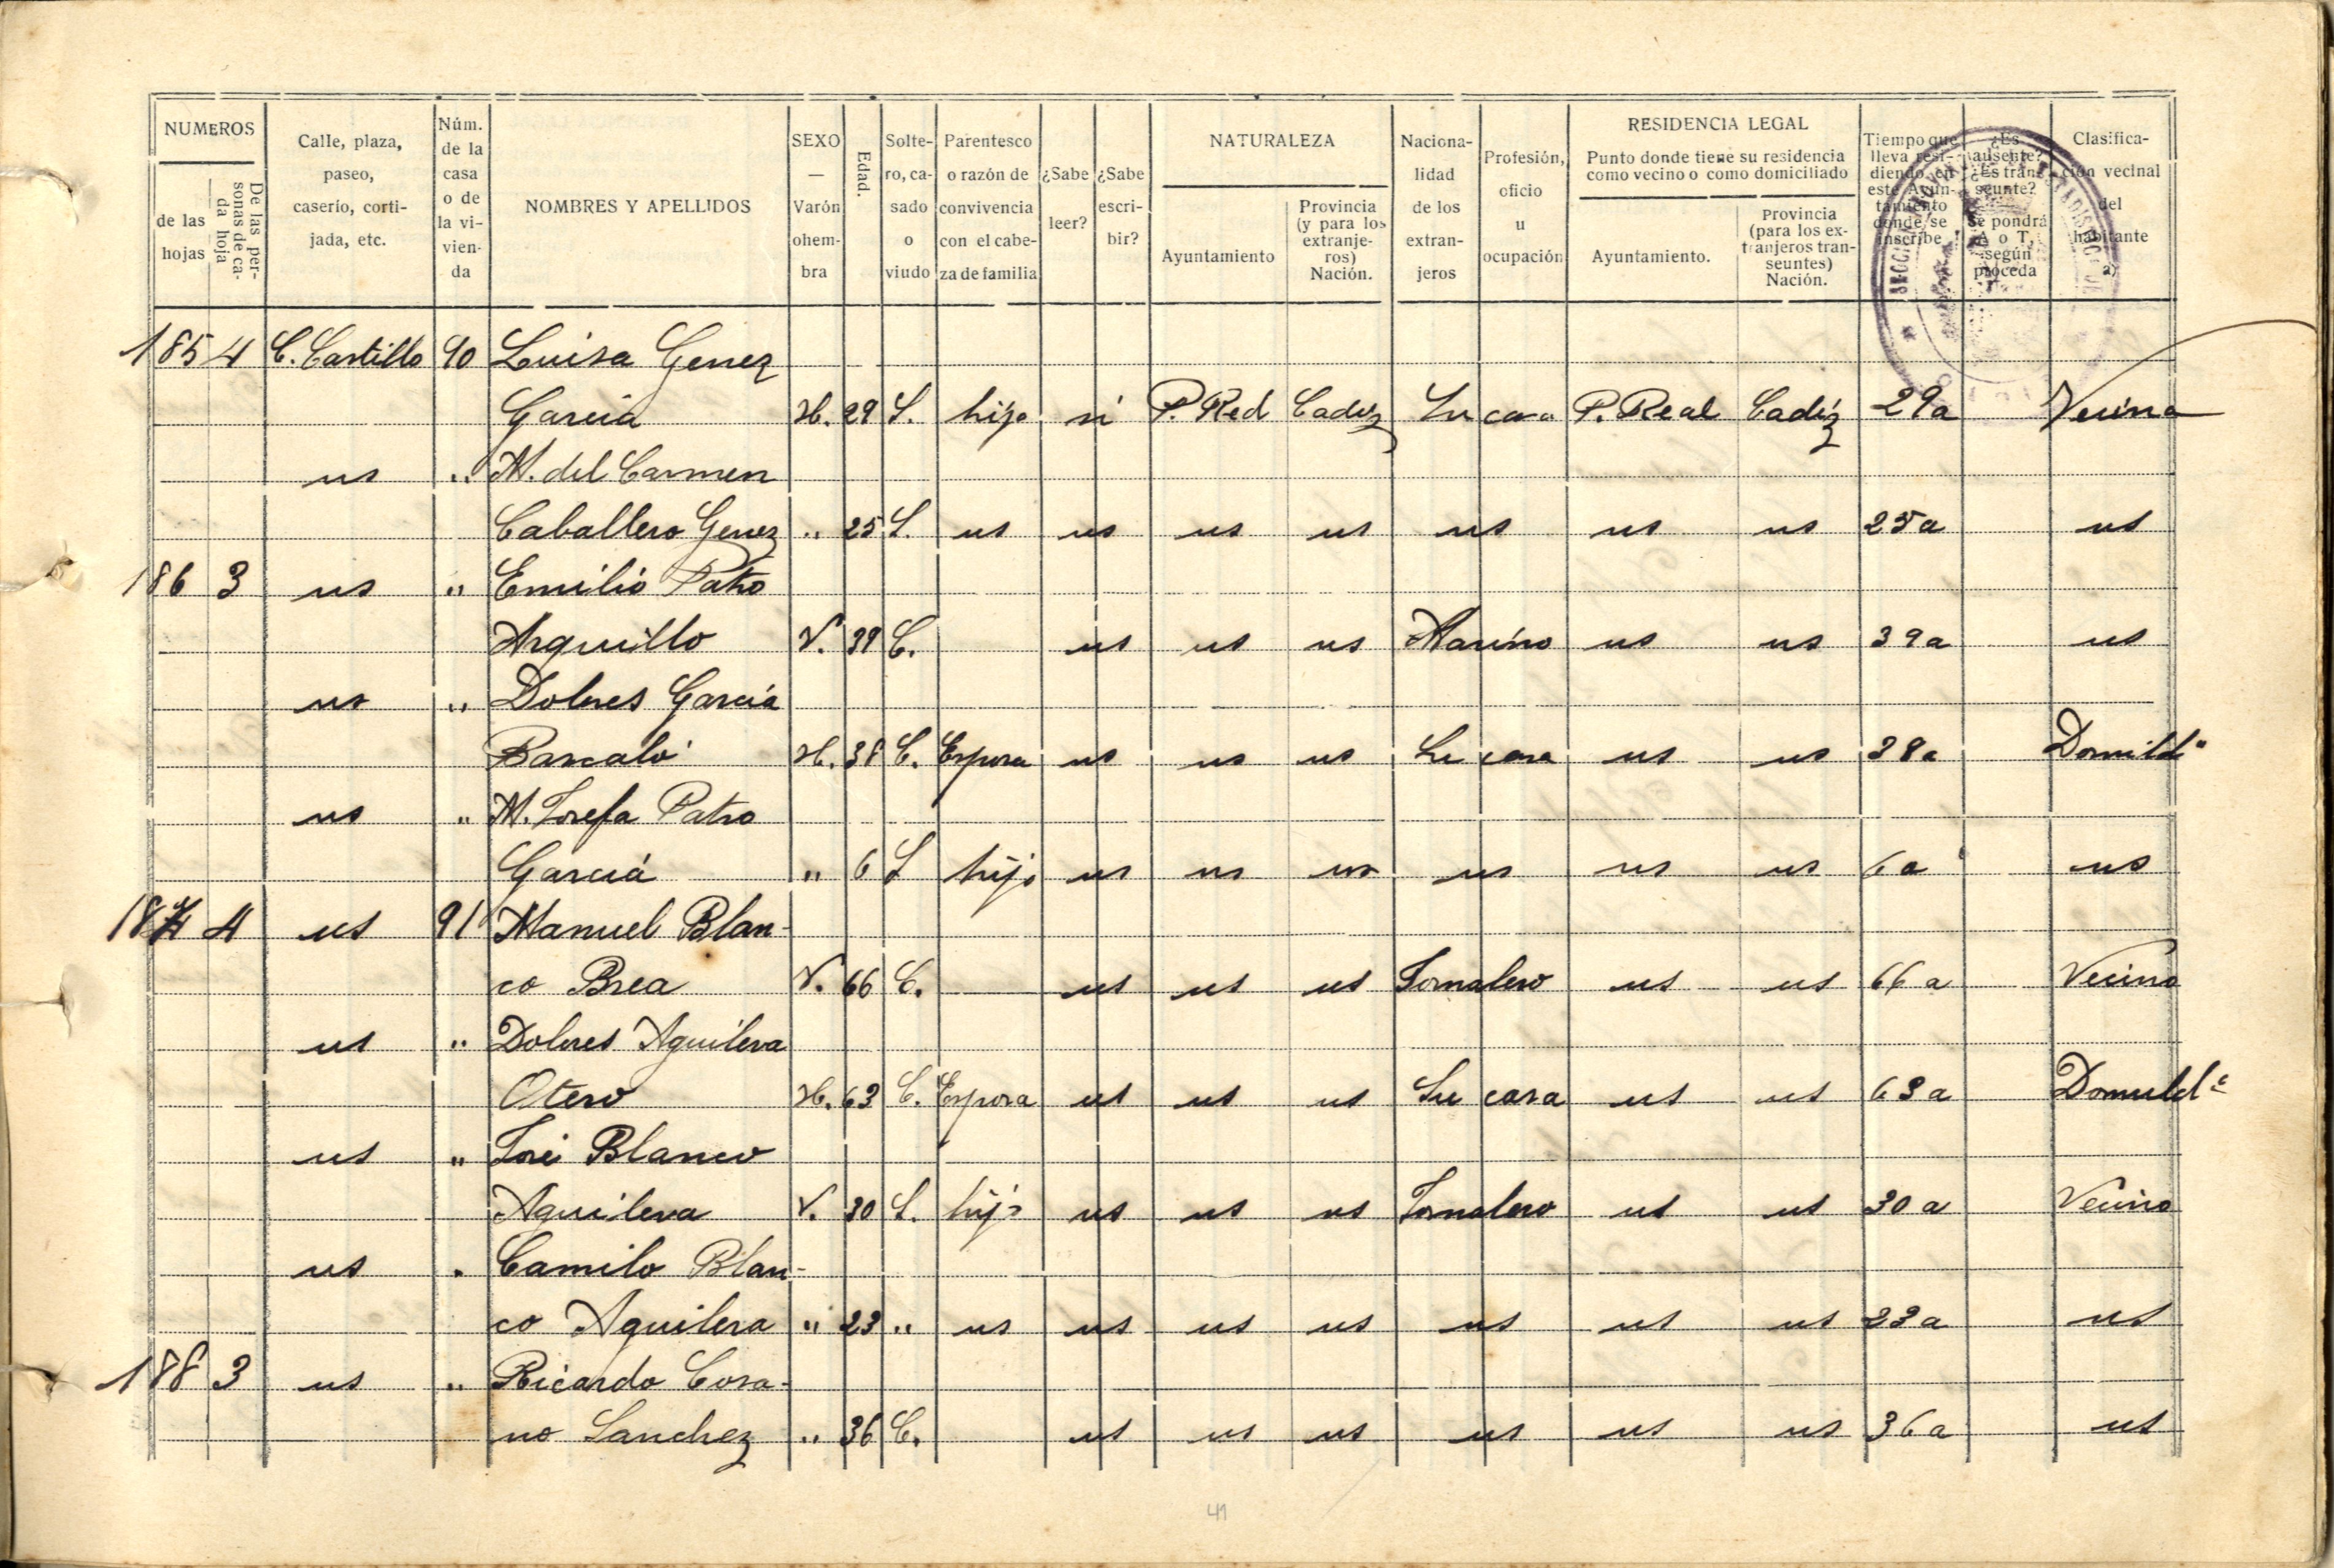 NUMEROS
de las hojas
De las personas de cada hoja
Calle, plaza, paseo, caserío, cortijada, etc.
Núm. de la casa o de la vivienda
NOMBRES Y APELLIDOS
SEXO — Varón o hembra
Edad.
Soltero, casado o viudo
Parentesco o razón de convivencia con el cabeza de familia
¿Sabe leer?
¿Sabe escribir?
NATURALEZA
Ayuntamiento
Provincia (y para los extranjeros) Nación.
Nacionalidad de los extranjeros
Profesión, oficio u ocupación
RESIDENCIA LEGAL
Punto donde tiene su residencia como vecino o como domiciliado
Ayuntamiento.
Provincia (para los extranjeros transeuntes) Nación.
Tiempo que lleva residiendo en este Ayuntamiento donde se inscribe
¿Es ausente? ¿Es transeunte? Se pondrá A o T, según proceda
Clasificación vecinal del habitante a)
185 4 C. Castillo 90 Luisa Genez
Garcia H. 29 S. hija si P. Real Cadiz Su casa P. Real Cadiz 29a Vecina
us " M. del Carmen
Caballero Genez " 25 S. us us us us us us us 25a us
186 3 us " Emilio Patro
Arquillo V. 39 C. us us us Marino us us 39a us
us " Dolores García
H. 38 C. Esposa us us us Su casa us us 38a Domild.
us " M. Josefa Patro
García " 6 S hija us us us us us us 6a us
187 4 us 91 Manuel Blan-
co Brea V. 66 C. us us us Jornalero us us 66a Vecino
us " Dolores Aguilera
Otero H. 63 C. Esposa us us us Su casa us us 63a
us " José Blanco
Aguilera V. 30 S. hijo us us us Jornalero us us 30a Vecino
us " Camilo Blan-
co Aguilera " 23 " us us us us us us us 23a us
188 3 us " Ricardo Cosa-
no Sanchez " 36 C. us us us us us us 36a us
41